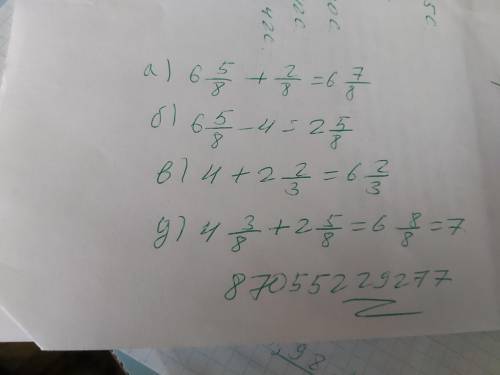 5с
0с
2с
42с.
а) 6 5/8 + 2/8 = 6 7/8
б) 6 5/8 - 4 = 2 5/8
в) 4 + 2 2/3 = 6 2/3
д) 4 3/8 + 2 5/8 = 6 8/8 = 7
87055229277
98